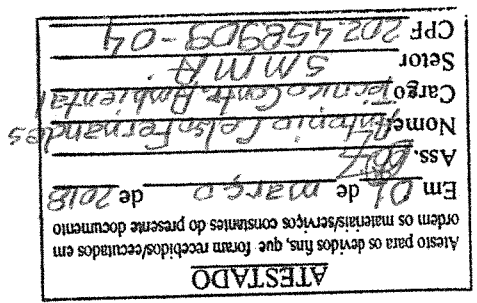 ATESTADO
Atesto para os devidos fins, que foram recebidos/executados em
ordem os materiais/serviços constantes do presente documento
Em 01 de março de 2018
Ass.
Nome Antonio Celso Fernandes
Cargo Técnico Contr. Ambiental
Setor SMMA
CPF 202.458909-04